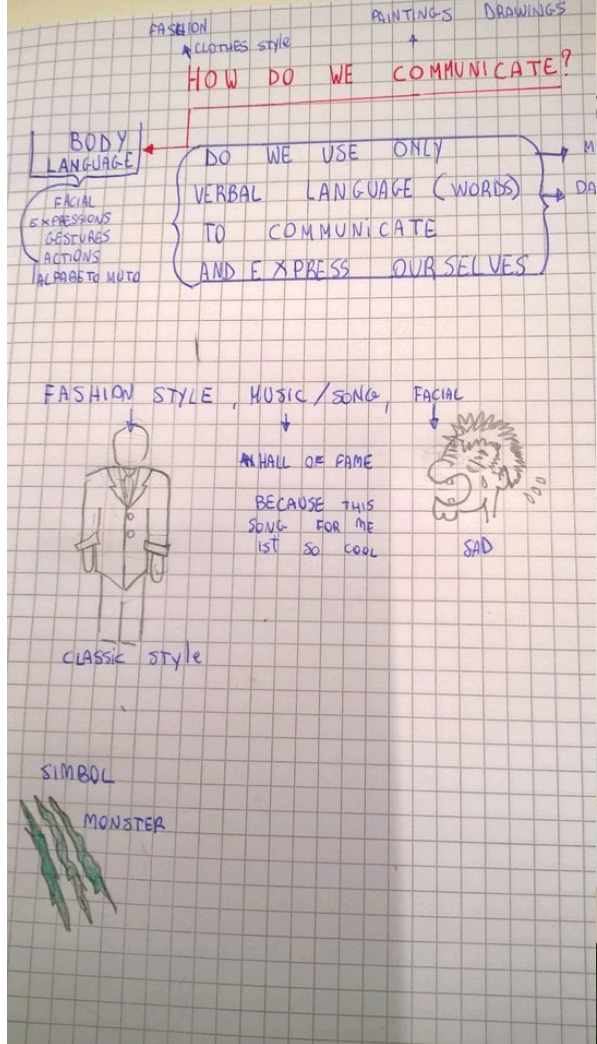 FASHION
CLOTHES STYLE
PAINTINGS DRAWINGS
HOW DO WE COMMUNICATE?
BODY
LANGUAGE
FACIAL
EXPRESSIONS
GESTURES
ACTIONS
ALFABETO MUTO
DO WE USE ONLY
VERBAL LANGUAGE (WORDS)
TO COMMUNICATE
AND EXPRESS OURSELVES
M
DA
FASHION STYLE, MUSIC/SONG, FACIAL
HALL OF FAME
BECAUSE THIS
SONG FOR ME
IST SO COOL
SAD
CLASSIC STYLE
SIMBOL
MONSTER